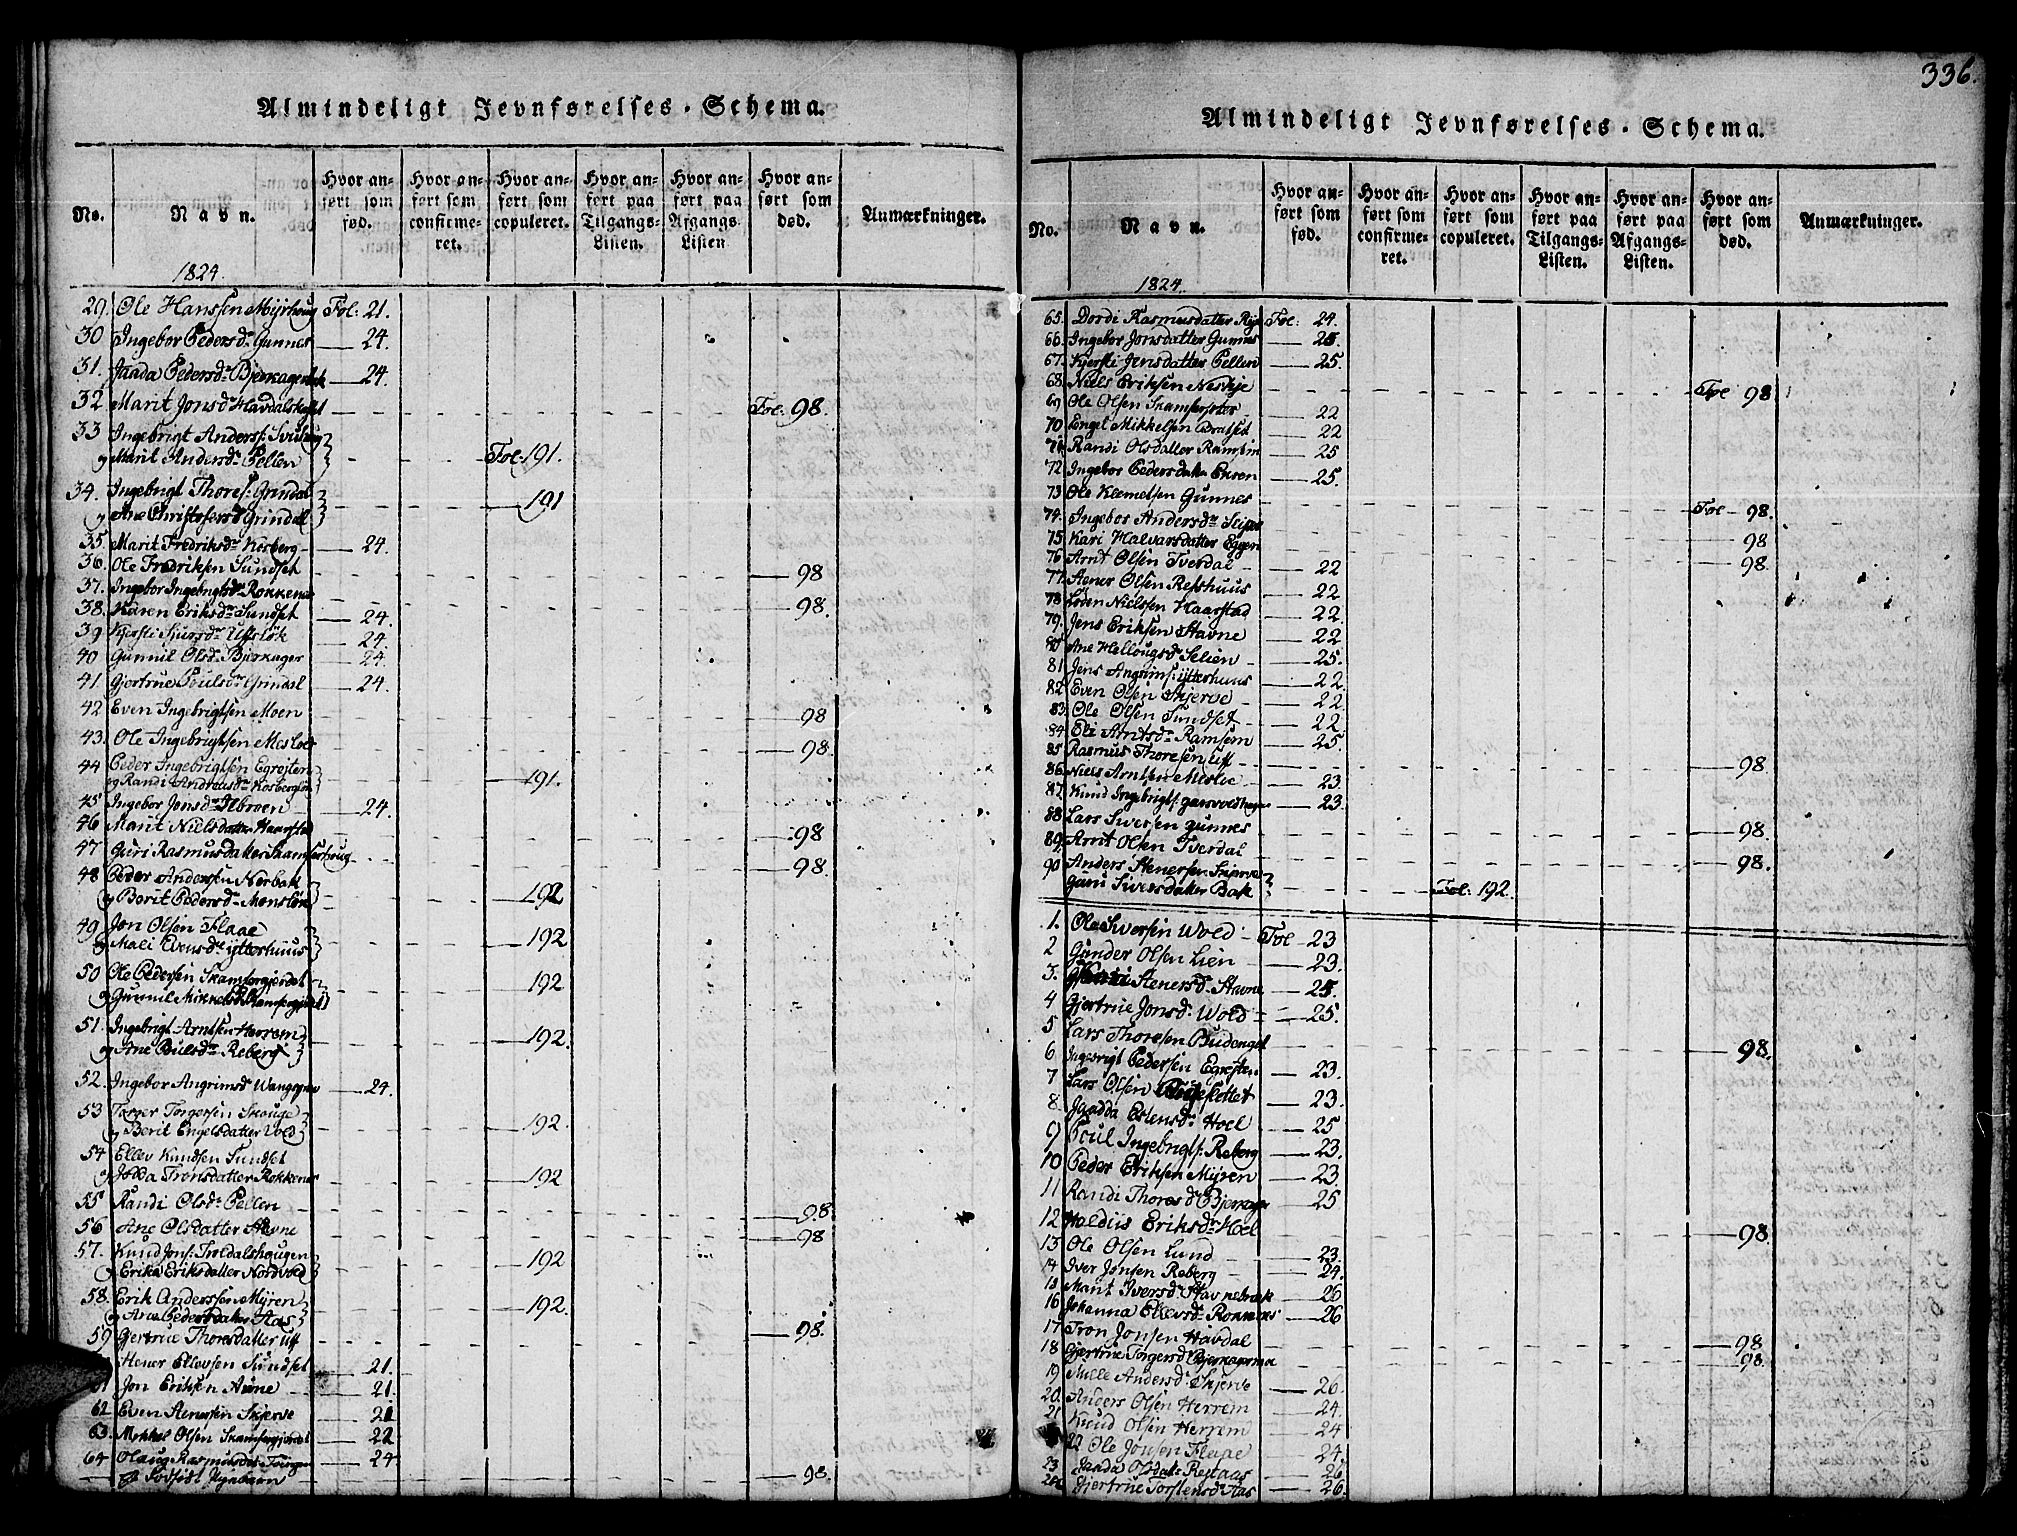 336.
Almindeligt Jevnførelses-Schema.
No.
Navn.
Hvor anført som fød.
Hvor anført som confirmeret.
Hvor anført som copuleret.
Hvor anført paa Tilgangs-Listen.
Hvor anført paa Afgangs-Listen
Hvor anført som død.
Anmærkninger.
1824.
29. Ole Hanssen Myrhoug Fol: 21.
30 Ingebor Pedersdr Gunnes 24.
31. Jaada Pedersdr 24.
32 Marit Jonsdr Fol: 98.
33 Ingebrigt Anderss:
og Marit Andersdr Pellen Fol: 191.
34. Ingebrigt Thores: Grindal
og Ane Christofersdr Grindal 191
35. Marit Fredriksdr Kosberg 24.
36. Ole Fredriksen Sundset 98
37. Ingebor Ingebrigtsdr Rokkenes 98.
38. Karen Eriksdr Sundset 24.
39 Kjersti Siursdr 24
40 Gunnil Olsdr Bjerkager 24.
41. Gjertrue Poulsdr Grindal 24.
42 Even Ingebrigtsen Moen 98
43. Ole Ingebrigtsen 98.
44 Peder Ingebrigtsen
og Randi 191.
45 Ingebor Jonsdr 24.
46 Marit Nielsdatter Haarstad :98
47 Guri Rasmusdatter Skamferhoug 98.
48 Peder Andersen Nerbak
og Berit Pedersdr 192
49. Jon Olsen Flaae
og Mali Evensdr ytterhuus 192
50 Ole Pedersen Skamfergjerdet
og Gunnil Mikkelsdr 192
51. Ingebrigt Arntsen Herrem
og Ane Reberg 192.
52. Ingebor Angrimsdr 24.
53 Torger Torgersen Skouge
og Berit Engelsdatter Vold 192.
54 Ellev Knudsen Sundset
og Tronsdatter Rokkenes 192
55 Randi Olsdr Pellen 98
56 Ane Olsdatter Stavne 98
57. Knud Jons: Troldalshougen
og Erika Eriksdatter Nordvold 192
58. Erik Anderssen Myren
og Ane Pedersdatter Aas 192.
59 Gjertrue Thoresdatter Uff 98.
Stener Ellevsen Sundset 21.
61 Jon Eriksen Aune 21.
62 Even Stenersen Skjerve 21
63. Mikkel Olsen Skamfergjerdet 22
64 Olaug Rasmusdtr 24
Et Dødfødt 98.
Almindeligt Jevnførelses-Schema.
No.
Navn.
Hvor anført som fød.
Hvor anført som confirmeret.
Hvor anført som copuleret.
Hvor anført paa Tilgangs-Listen.
Hvor anført paa Afgangs-Listen.
Hvor anført som død.
Anmærkninger.
1824.
65. Dordi Rasmusdatter Fol: 24.
66. Ingebor Jonsdatter Gunnes 25.
67. Kjersti Jensdatter Pellen 25.
68. Niels Eriksen Fol 98
69 Ole Olsen 22
70 Engel Mikkelsen Bratset 22
71 Randi Olsdatter Ramsem 25
72 Ingebor Pedersdatter 25.
73 Ole Klemetsen Gunnes Fol 98.
74. Ingebor Andersdr 98
75 Kari Halvarsdatter Eggen 98.
76 Arnt Olsen Tverdal 22
77. Stener Olsen Refshuus 22
78 Loden Nielssen Haarstad 22.
79. Jens Eriksen Stavne 22
80 Ane Hellougsdr Selien 25.
81 Jens Angrims: ytterhuus 22.
82 Even Olsen Skjerve 22.
83. Ole Olsen Sundset 22
84 Eli Arntsdr Ramsem 25
85 Rasmus Thoresen Uff 98.
86. Niels Arntsen 23.
87 Knud Ingebrigts: 23.
88 Lars Siversen Gunnes 98.
89. Arnt Olsen Tverdal 98.
90 Anders Stenersen Skjerve
Guru Siversdatter Bak Fol: 192.
1. Ole Siversen Wold Fol 23
2 Gunder Olsen Lien 23.
3. Stenersdr Stavne 25.
4 Gjertrue Jonsdr Wold 25.
5 Lars Thoresen 98.
6 Ingebrigt Pedersen 23.
7 Lars Olsen 23.
8. Jaadda Estensdr Hoel 25
9 Poul Ingebrigts: Reberg 23.
10 Peder Eriksen Myren 23.
11 Randi Thoresdr Bjerkager 25
12 Eriksdr Hoel 98.
13 Ole Olsen Lund 23.
14 Iver Jonsen Reberg 24.
15 Marit Iversdr 26
16 Johanna Ellevsdr Rokkenes 26
17 Tron Jonsen Havdal 98
18 Gjertrue Torgersdr 98.
19 Andersdr Skjerve 26.
20. Anders Olsen Herrem 24.
21 Knud Olsen Herrem 24
22 Ole Jonsen Flaae 24.
23 Jaada Olsdatter 26
24 Gjertrue Torstensdr Aas 26.